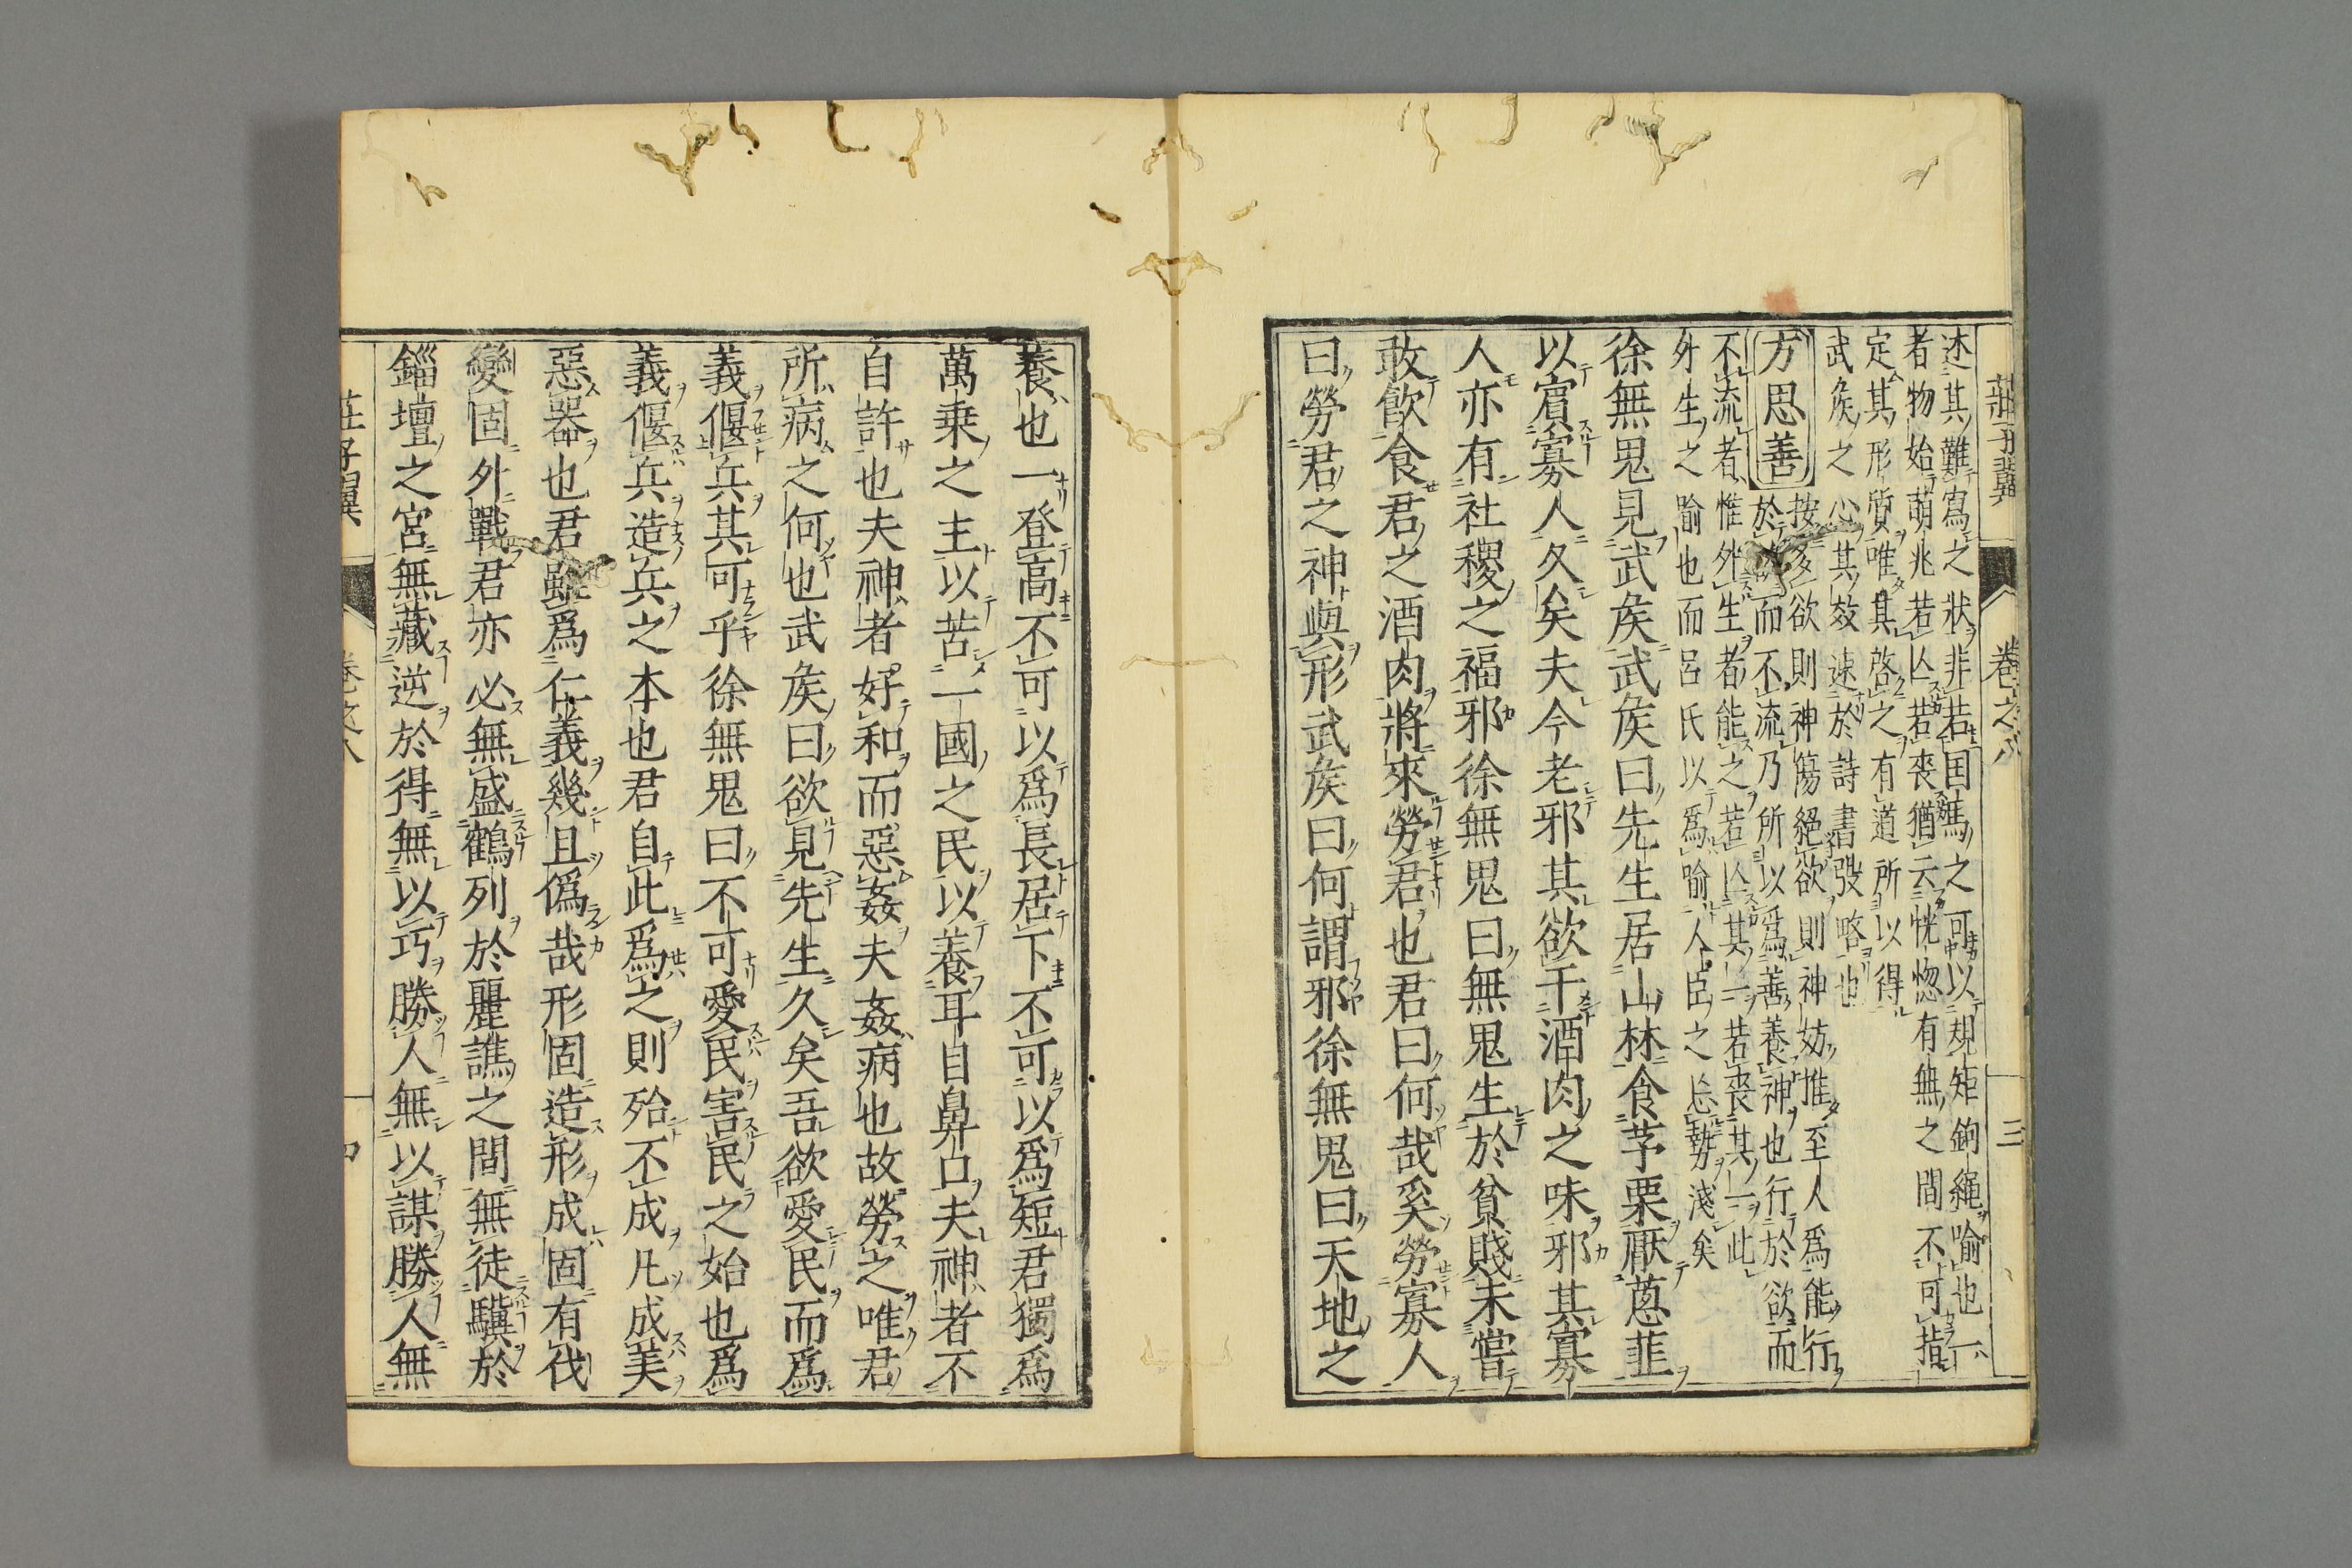 莊子翼 卷之八 三
述其難寫之狀非若国馬之可以規矩鉤繩喻也一
者物始萌兆若亾若喪猶云恍惚有無之間不可指
定其形質唯其啓之有道所以得
武矦之心其效速於詩書弢略也
方思善
按多欲則神傷絕欲則神妨惟至人為能行
於 而不流乃所以為善養神也行於欲而
不流者惟外生者能之若亾其一若喪其一此
外生之喻也而呂氏以為喻人臣之忘勢淺矣
徐無鬼見武矦武矦曰先生居山林食芧栗厭蔥韮
以賔寡人久矣夫今老邪其欲干酒肉之味邪其寡
人亦有社稷之福邪徐無鬼曰無鬼生於貧賤未嘗
敢飲食君之酒肉將來勞君也君曰何哉奚勞寡人
曰勞君之神與形武矦曰何謂邪徐無鬼曰天地之
養也一登高不可以爲長居下不可以爲短君獨爲
萬乗之主以苦一國之民以養耳目鼻口夫神者不
自許也夫神者好和而惡姦夫姦病也故勞之唯君
所病之何也武矦曰欲見先生久矣吾欲愛民而爲
義偃兵其可乎徐無鬼曰不可愛民害民之始也爲
義偃兵造兵之本也君自此爲之則殆不成凡成美
惡器也君雖爲仁義幾且僞哉形固造形成固有伐
變固外戰君亦必無盛鶴列於麗譙之間無徒驥於
錙壇之宮無藏逆於得無以巧勝人無以謀勝人無
莊子翼 卷之八 四